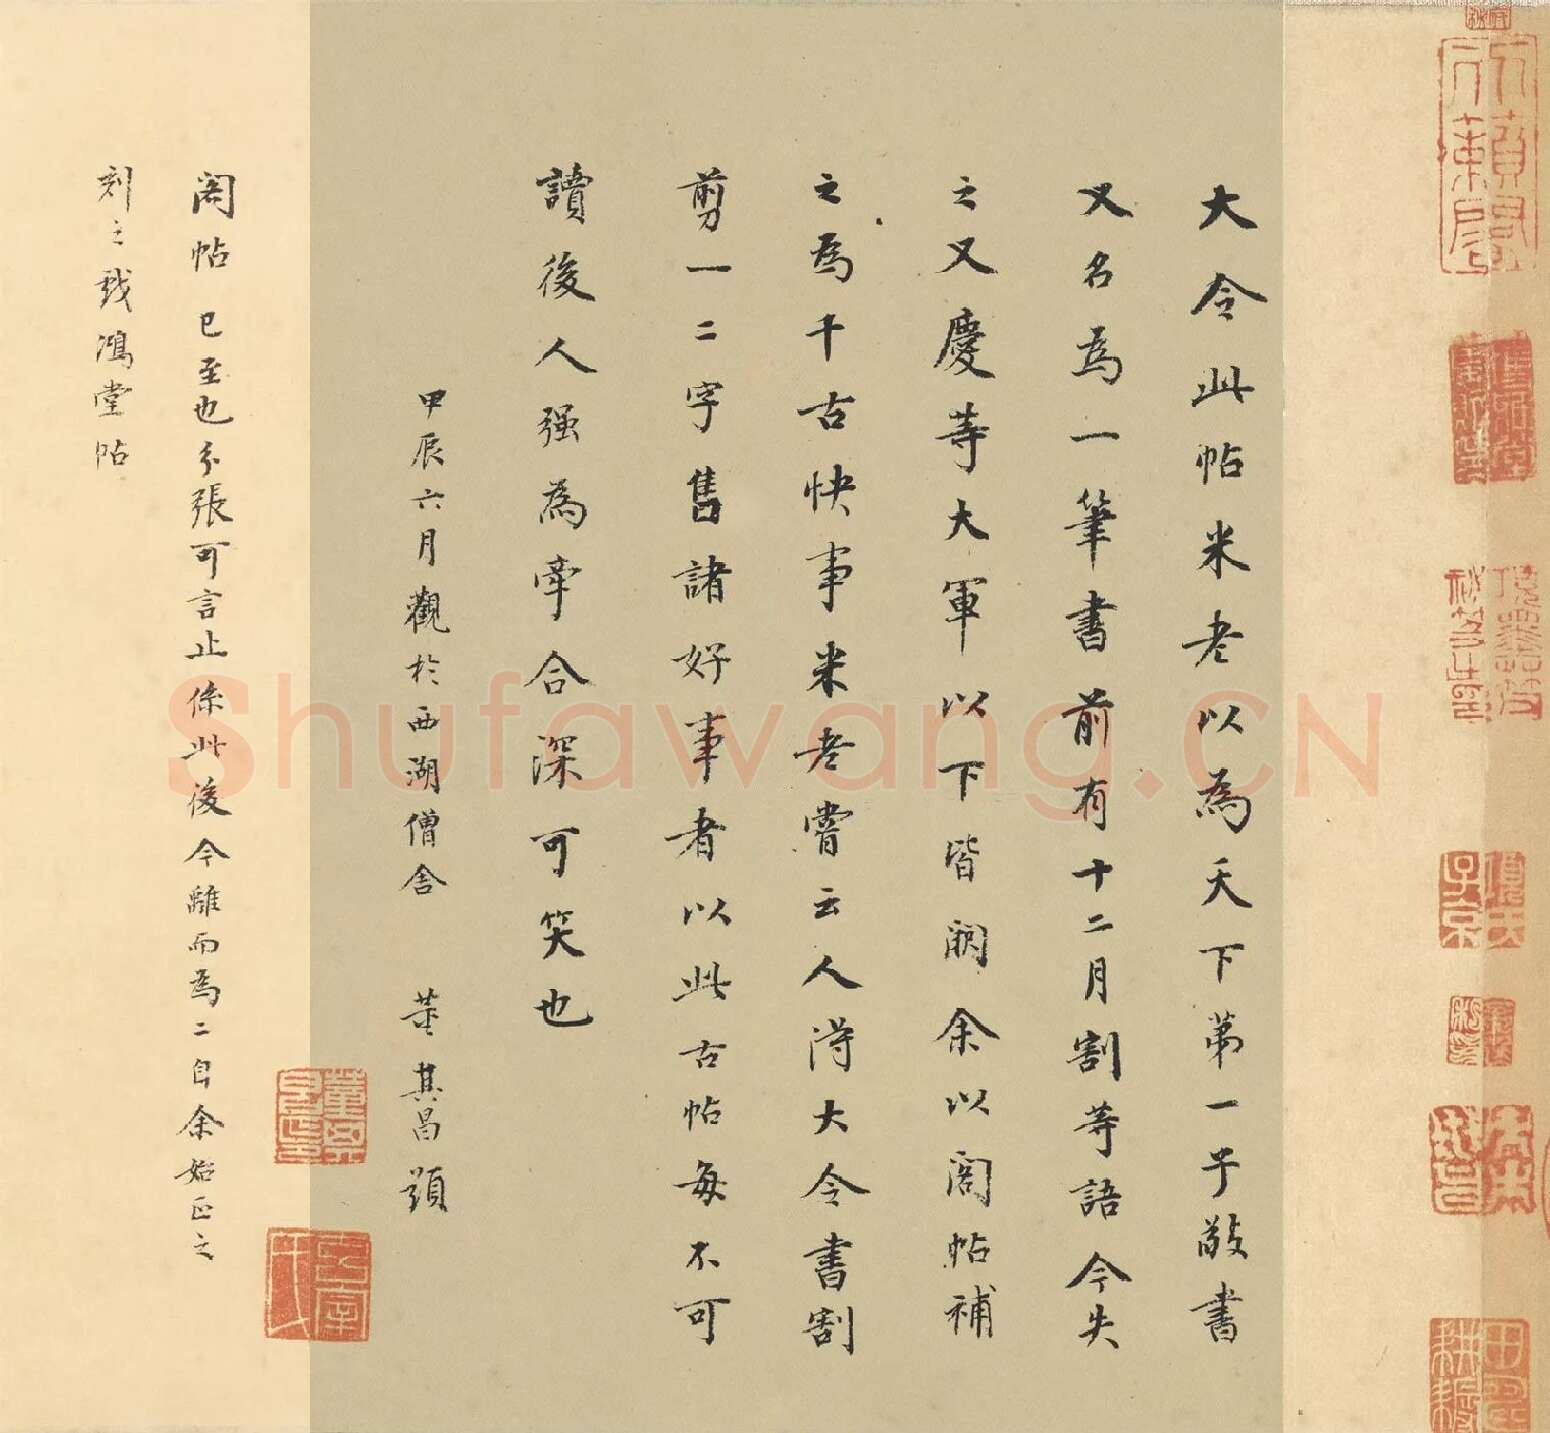 大令此帖米老以為天下第一子敬書
又名為一筆書前有十二月割等語今失
之又慶等大軍以下皆闕余以閣帖補
之為千古快事米老嘗云人得大令書割
剪一二字售諸好事者以此古帖每不可
讀後人强為牽合深可笑也
甲辰六月觀於西湖僧舍 董其昌題
閣帖 已至也分張可言止係此後今離而為二自余始正之
刻之戲鴻堂帖
Shufawang.CN